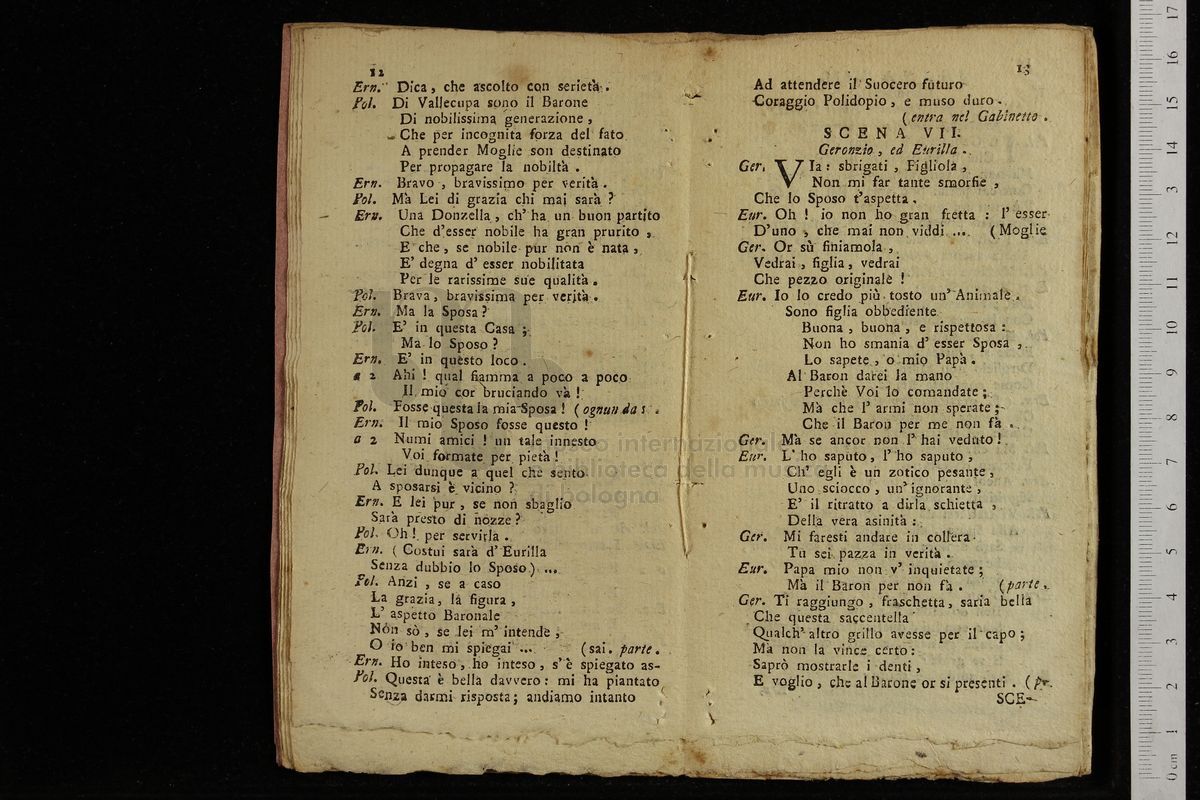 12
Ern. Dica, che ascolto con serietà.
Pol. Di Vallecupa sono il Barone
Di nobilissima generazione,
Che per incognita forza del fato
A prender Moglie son destinato
Per propagare la nobiltà.
Ern. Bravo, bravissimo per verità.
Pol. Mà Lei di grazia chi mai sarà?
Ern. Una Donzella, ch' ha un buon partito
Che d'esser nobile ha gran prurito,
E che, se nobile pur non è nata,
E' degna d' esser nobilitata
Per le rarissime sue qualità.
Pol. Brava, bravissima per verità.
Ern. Ma la Sposa?
Pol. E' in questa Casa;
Ma lo Sposo?
Ern. E' in questo loco.
a 2 Ahi! qual fiamma a poco a poco
Il mio cor bruciando và!
Pol. Fosse questa la mia Sposa! (ognun da s.
Ern. Il mio Sposo fosse questo!
a 2 Numi amici! un tale innesto
Voi formate per pietà!
Pol. Lei dunque a quel che sento
A sposarsi è vicino?
Ern. E lei pur, se non sbaglio
Sarà presto di nozze?
Pol. Oh! per servirla.
Ern. (Costui sarà d'Eurilla
Senza dubbio lo Sposo) ...
Pol. Anzi, se a caso
La grazia, la figura,
L' aspetto Baronale
Non sò, se lei m' intende,
O io ben mi spiegai ... (sai. parte.
Ern. Ho inteso, ho inteso, s' è spiegato as-
Pol. Questa è bella davvero: mi ha piantato
Senza darmi risposta; andiamo intanto
13
Ad attendere il Suocero futuro
Coraggio Polidopio, e muso duro.
(entra nel Gabinetto.
SCENA VII.
Geronzio, ed Eurilla.
Ger. VIa: sbrigati, Figliola,
Non mi far tante smorfie,
Che lo Sposo t'aspetta.
Eur. Oh! io non ho gran fretta: l' esser
D'uno, che mai non viddi ... (Moglie
Ger. Or sù finiamola,
Vedrai, figlia, vedrai
Che pezzo originale!
Eur. Io lo credo più tosto un' Animale.
Sono figlia obbediente
Buona, buona, e rispettosa:
Non ho smania d' esser Sposa,
Lo sapete, o mio Papà.
Al Baron darei la mano
Perchè Voi lo comandate;
Mà che l' armi non sperate;
Che il Baron per me non fà.
Ger. Mà se ancor non l' hai veduto!
Eur. L' ho saputo, l' ho saputo,
Ch' egli è un zotico pesante,
Uno sciocco, un' ignorante,
E' il ritratto a dirla schietta,
Della vera asinità:
Ger. Mi faresti andare in collera
Tu sei pazza in verità.
Eur. Papa mio non v' inquietate;
Mà il Baron per non fà. (parte.
Ger. Ti raggiungo, fraschetta, saria bella
Che questa saccentella
Qualch' altro grillo avesse per il capo;
Ma non la vince certo:
Saprò mostrarle i denti,
E voglio, che al Barone or si presenti. (pr.
SCE-
internazionale
biblioteca della musica
di bologna